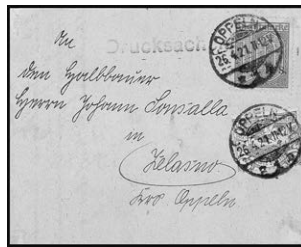 An
Drucksache
OPPELN
26.4.21.
den Halbbauer
Herrn Johann
in
OPPELN
26.4.21.
Zelasno
Krs Oppeln